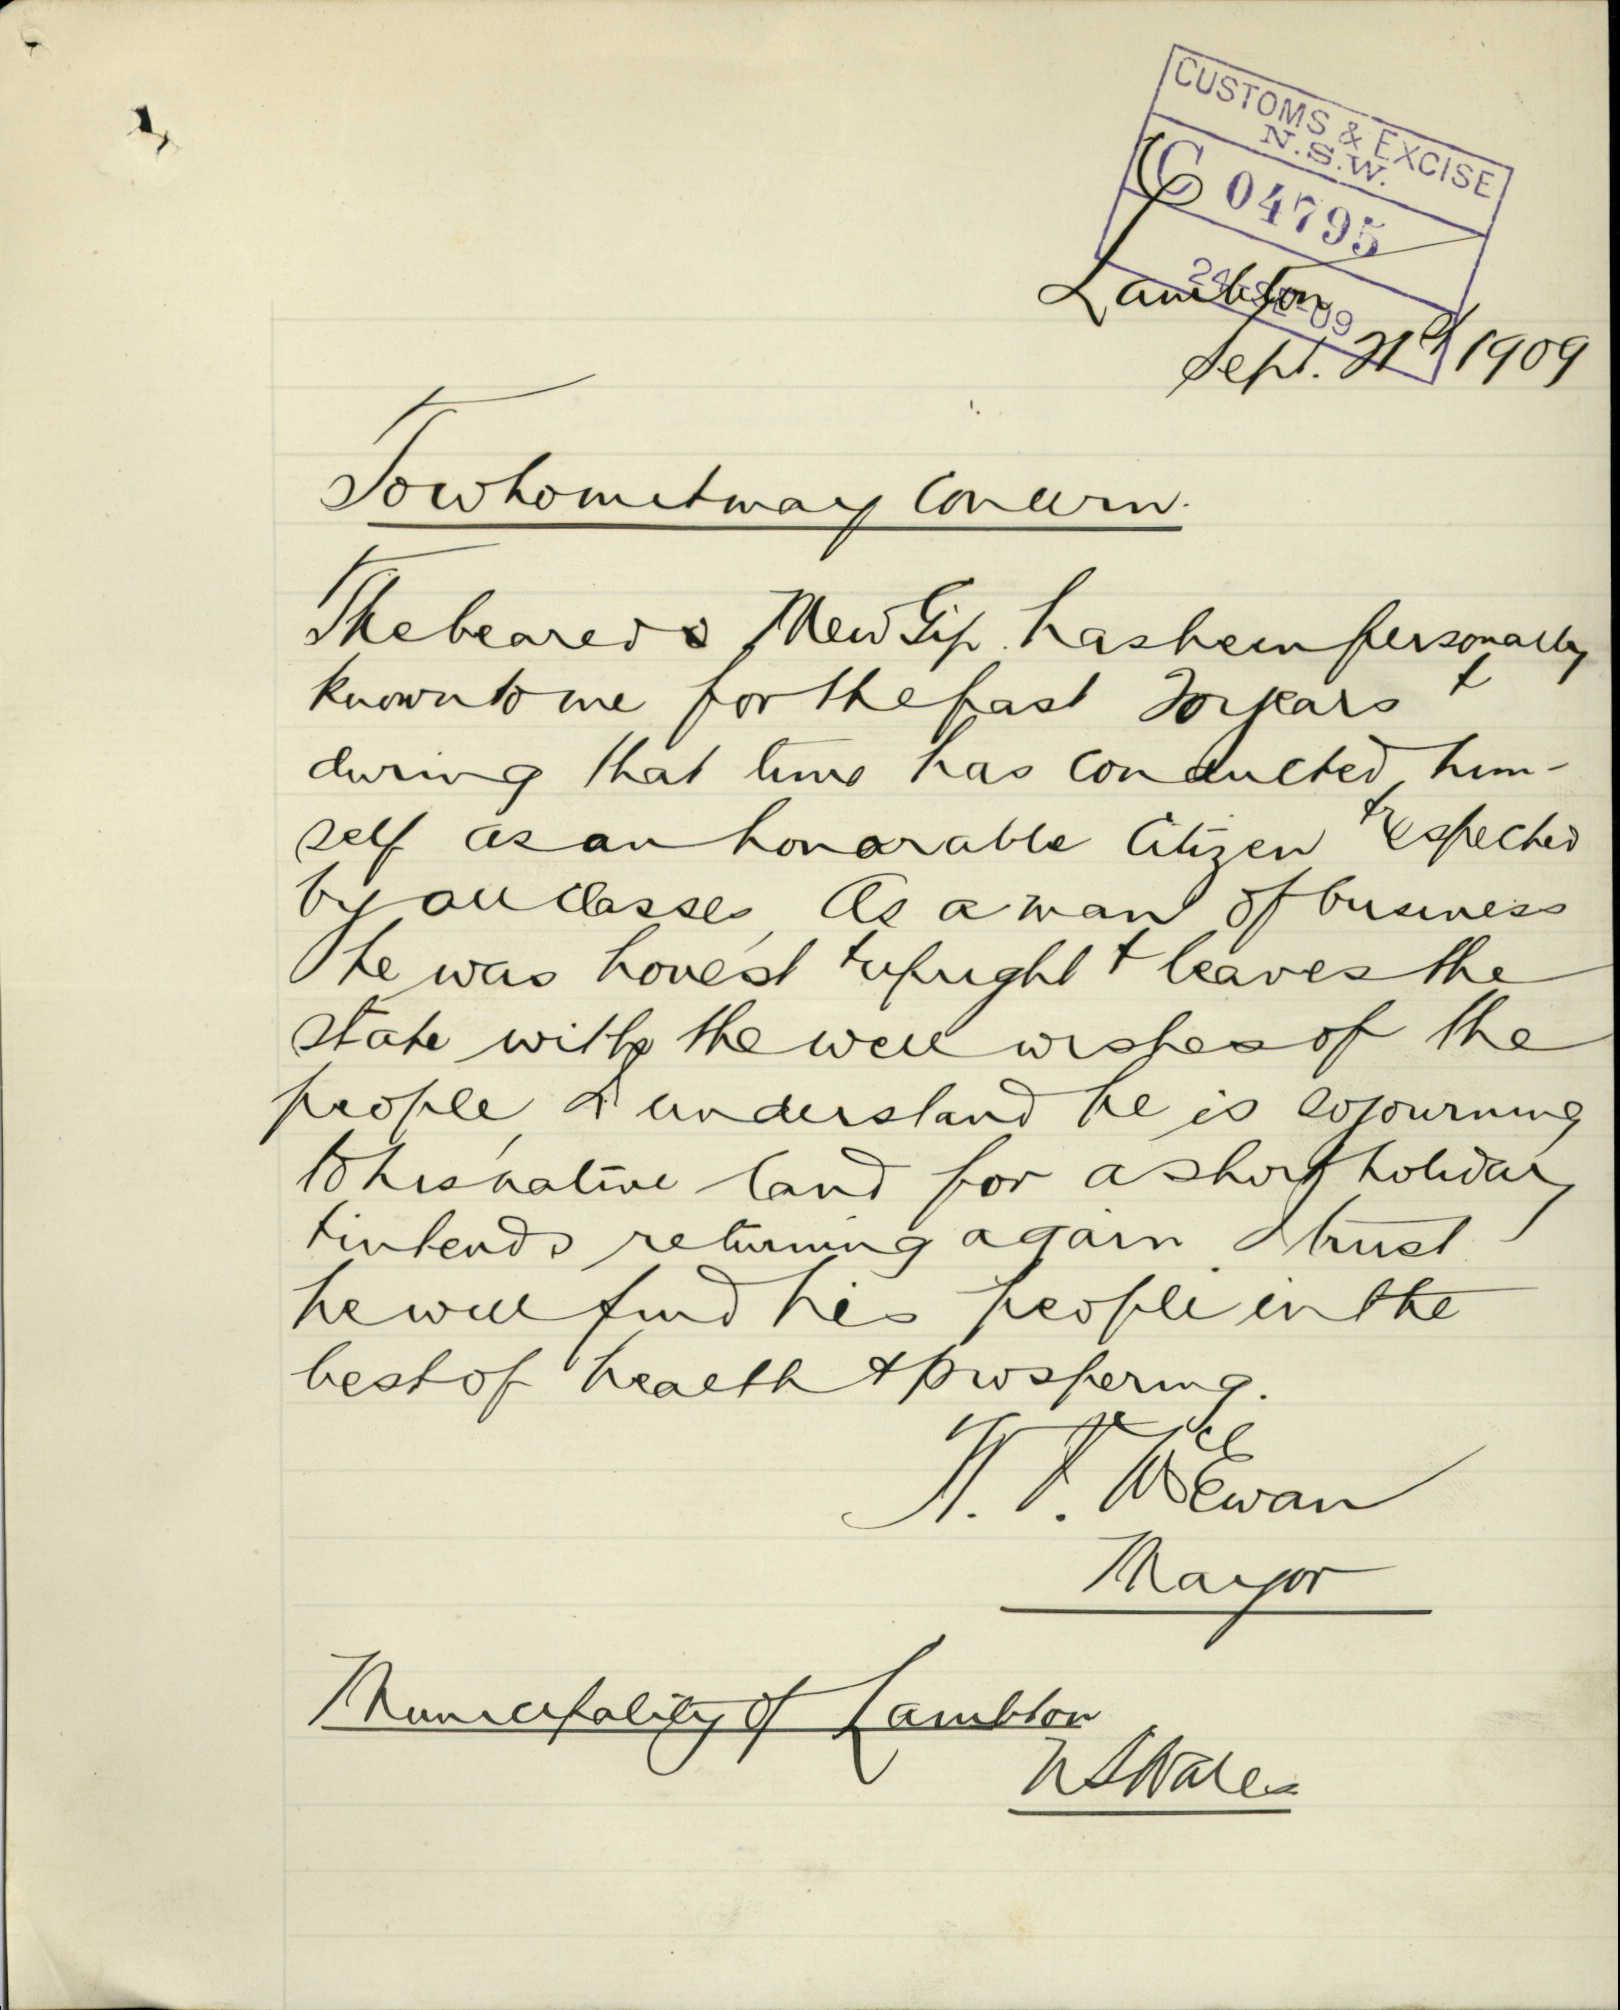 CUSTOMS & EXCISE
N.S.W.
C 04795
24 SE 09
Lambton
Sept. 21st 1909
To whom it may concern.
The bearer Mew Gip has been personally
known to me for the past 20 years &
during that time has conducted him-
self as an honorable Citizen & respected
by all classes, As a man of business
he was honest & upright & leaves the
state with the well wishes of the
people, I understand he is sojourning
to his native land for a short holiday
& intends returning again I trust
he will find his people in the
best of health & prospering.
McEwan
Mayor
Municipality of Lambton
N S Wales